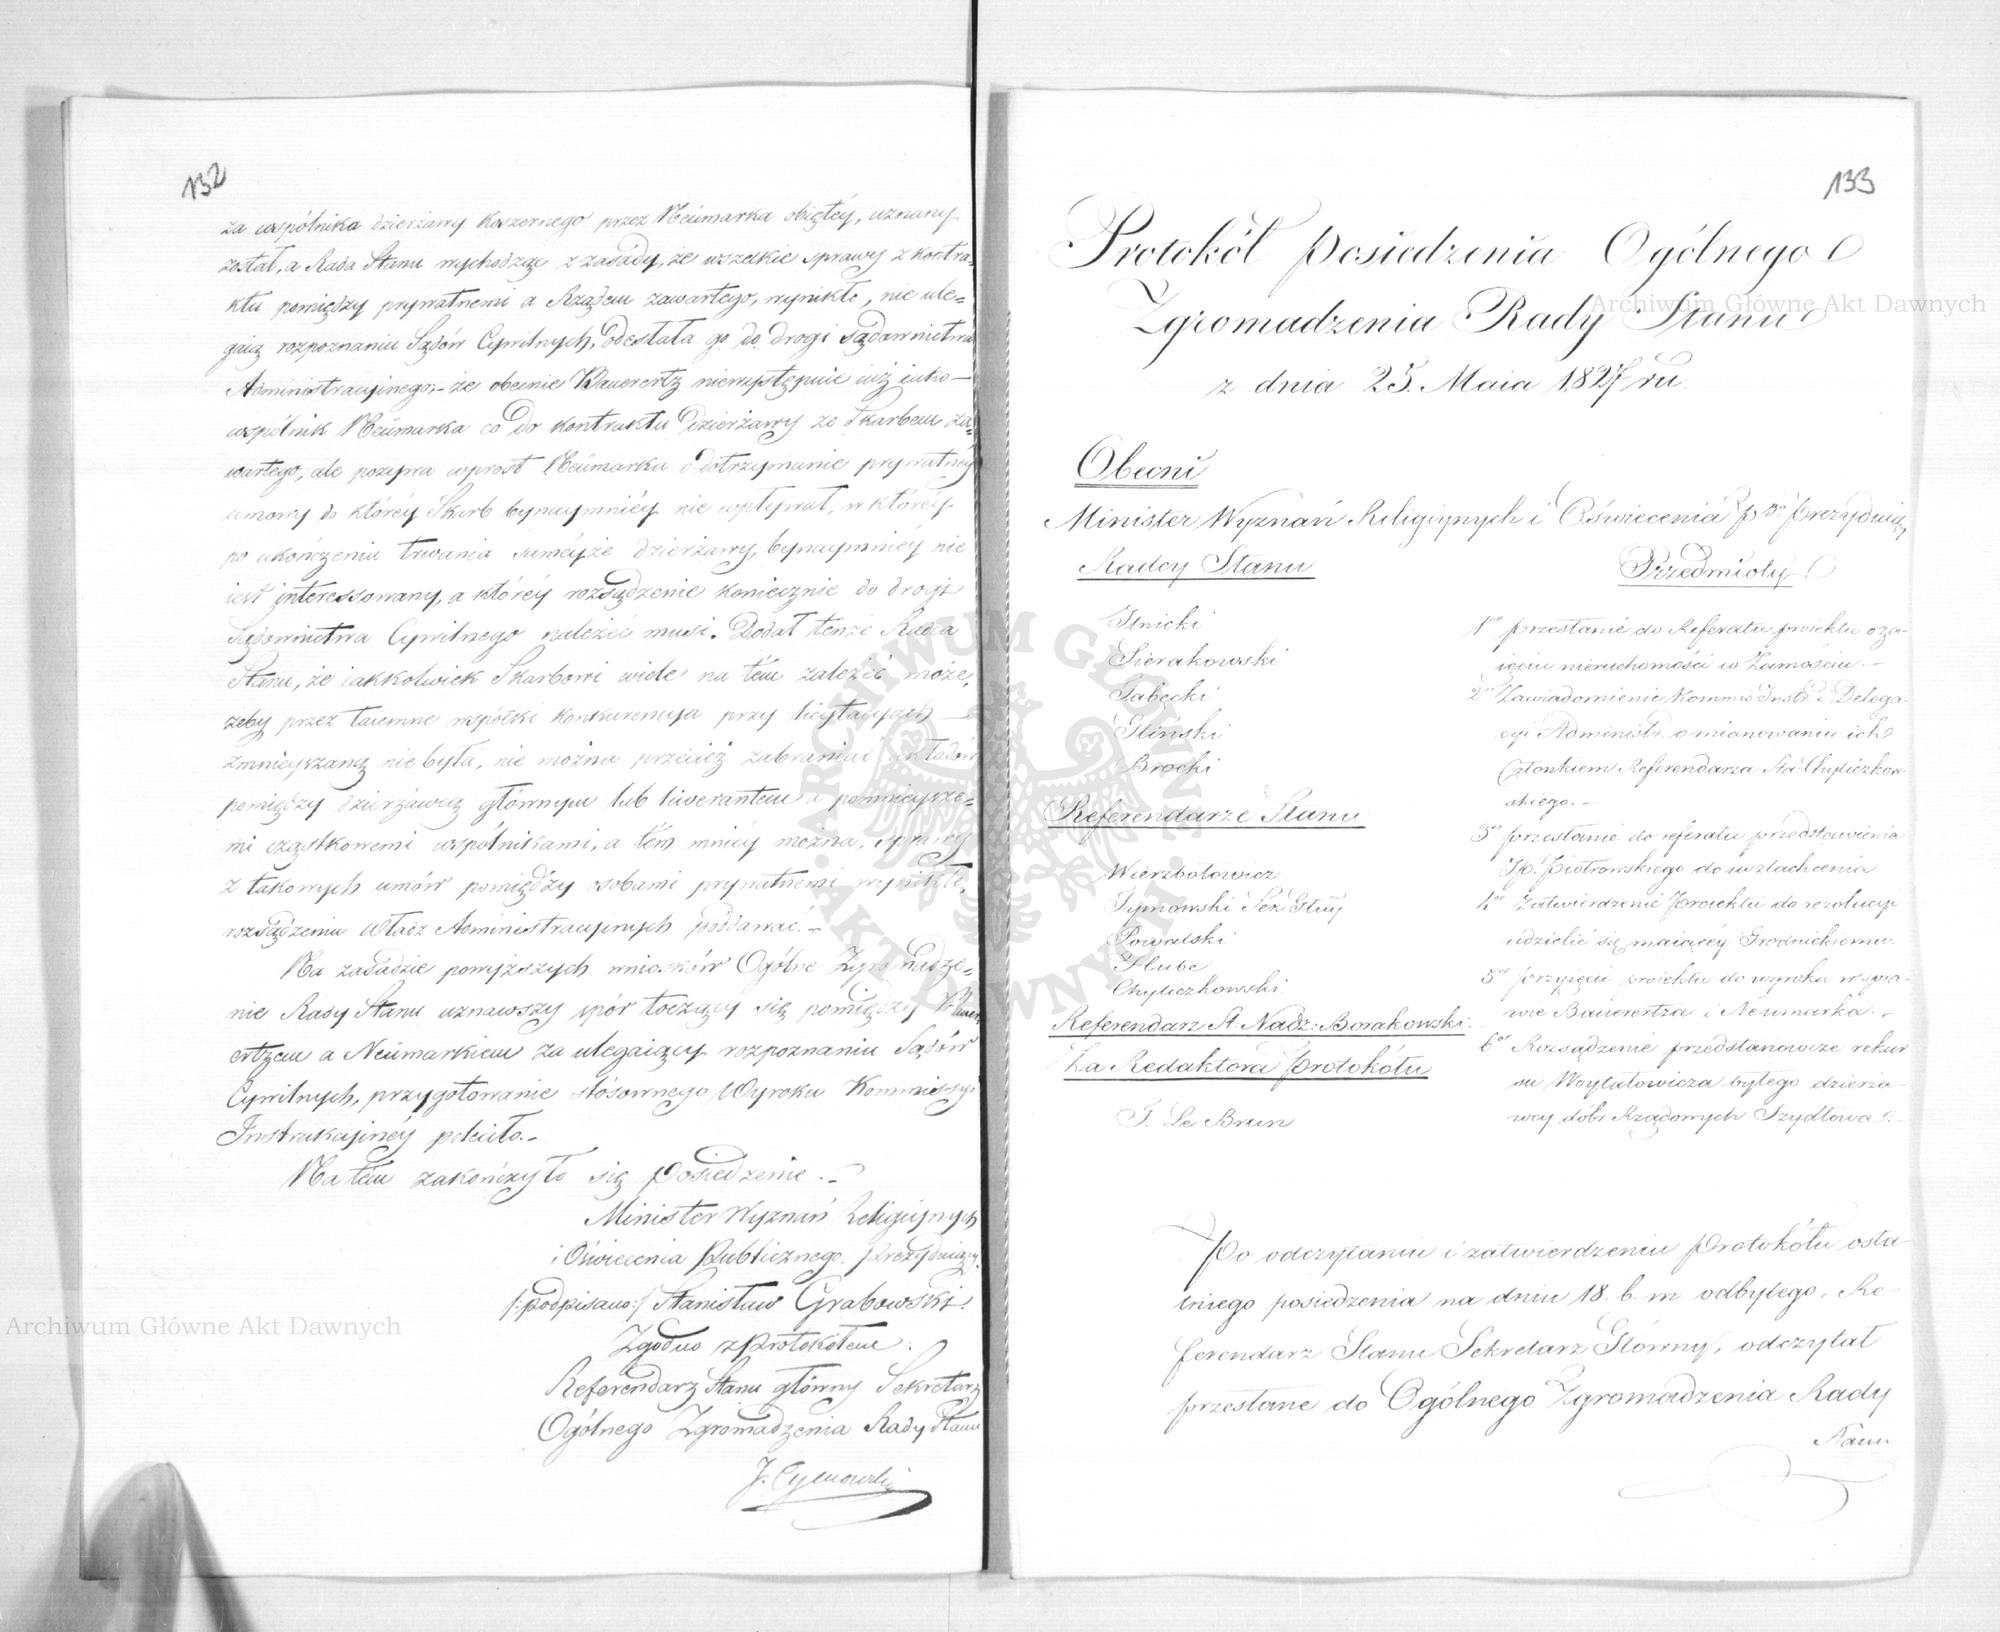 132
za wspólnika dzierżawy Koszernego przez Neümarka obiętéy, uznany
został, a Rada Stanu wychodząc z zasady, że wszelkie sprawy z kontra-
ktu pomiędzy prywatnemi a Rządem zawartego, wynikłe, nie ule-
gaią rozpoznaniu Sądów Cywilnych, odesłała go do drogi sądownictwa
Administracyinego,- że obecnie Bauerertz niewystępuie iuż iako-
wspólnik Neümarka co do kontraktu dzierżawy ze Skarbem za-
wartego, ale pozywa wprost Neümarka o dotrzymanie prywatnéy
umowy do któréy Skarb bynaymniéy nie wpływał, w któréy
po ukończeniu trwania saméyże dzierżawy, bynaymniéy nie
iest interessowany, a któréy rozsądzenie koniecznie do drogi
Sądownictwa Cywilnego należeć musi. Dodał tenże Radca
Stanu, że iakkolwiek Skarbowi wiele na tém zależéć może,
żeby przez taiemne wspólki konkurencya przy licytacyach
zmnieyszaną nie była, nie można przecież zabraniać układów
pomiędzy dzierżawcą głównym lub liwerantem a pomnieysze-
mi cząstkowemi wspólnikami, a tém mniéy można, sprawy
z takowych umów pomiędzy osobami prywatnemi wynikłe,
rozsądzeniu Władz Administracyinych poddawać.-
Na zasadzie powyższych wniosków Ogólne Zgromadze-
nie Rady Stanu uznawszy spór toczący się pomiędzy Bauer-
ertzem a Neümarkiem za ulegaiący rozpoznaniu Sądów
Cywilnych, przygotowanie stósownego Wyroku Kommissyi
Instrukcyinéy poleciło.-
Na tém zakończyło się Posiedzenie.-
Minister Wyznań Religiynych
i Oświecenia Publicznego. prezyduiący.
/:podpisano:/ Stanisław Grabowski.
Zgodno z Protokółem:
Referendarz Stanu główny Sekretarz
Ogólnego Zgromadzenia Rady Stanu
J. Tymowski
133
Protokół Posiedzenia Ogólnego
Zgromadzenia Rady Stanu
z dnia 25. Maia 1827 ru.
Obecni
Minister Wyznań Religiynych i Oświecenia P. prezyduiący
Radcy Stanu
Ilnicki
Sierakowski
Tabęcki
Gliński
Brocki
Referendarze Stanu
Wierzbołowicz
Tymowski Sek Głny
Powalski
Hube
Chyliczkowski
Referendarz St. Nadz: Borakowski
Za Redaktora Protokółu
T. Le Brun
Przedmioty
1° przesłanie do Referatu proiektu o za-
ięciu nieruchomości w Zamościu.-
2° Zawiadomienie Kommis Instr: i Delega-
cyi Administr: o mianowaniu ich
Członkiem Referendarza Sta: Chyliczkow-
skiego.-
3° przesłanie do referatu przedstawienia
Piotrowskiego do uszlachcenia
4° Zatwierdzenie Proiektu do rezolucyi
udzielić się maiącéy Grodnickiemu.
5° przyięcie proiektu do wyroku w spra-
wie Bauerertza i Neumarka.-
6° Rozsądzenie przedstanowcze rekur
su Woytatowicza byłego dzierża-
wcy dóbr Rządowych Szydłowa.-
Po odczytaniu i zatwierdzeniu Protokółu osta
tniego posiedzenia na dniu 18. b. m odbytego, Re-
ferendarz Stanu Sekretarz Główny, odczytał
przesłane do Ogólnego Zgromadzenia Rady
Stanu
Archiwum Główne Akt Dawnych
Archiwum Główne Akt Dawnych
ARCHIWUM GŁÓWNE
AKT DAWNYCH